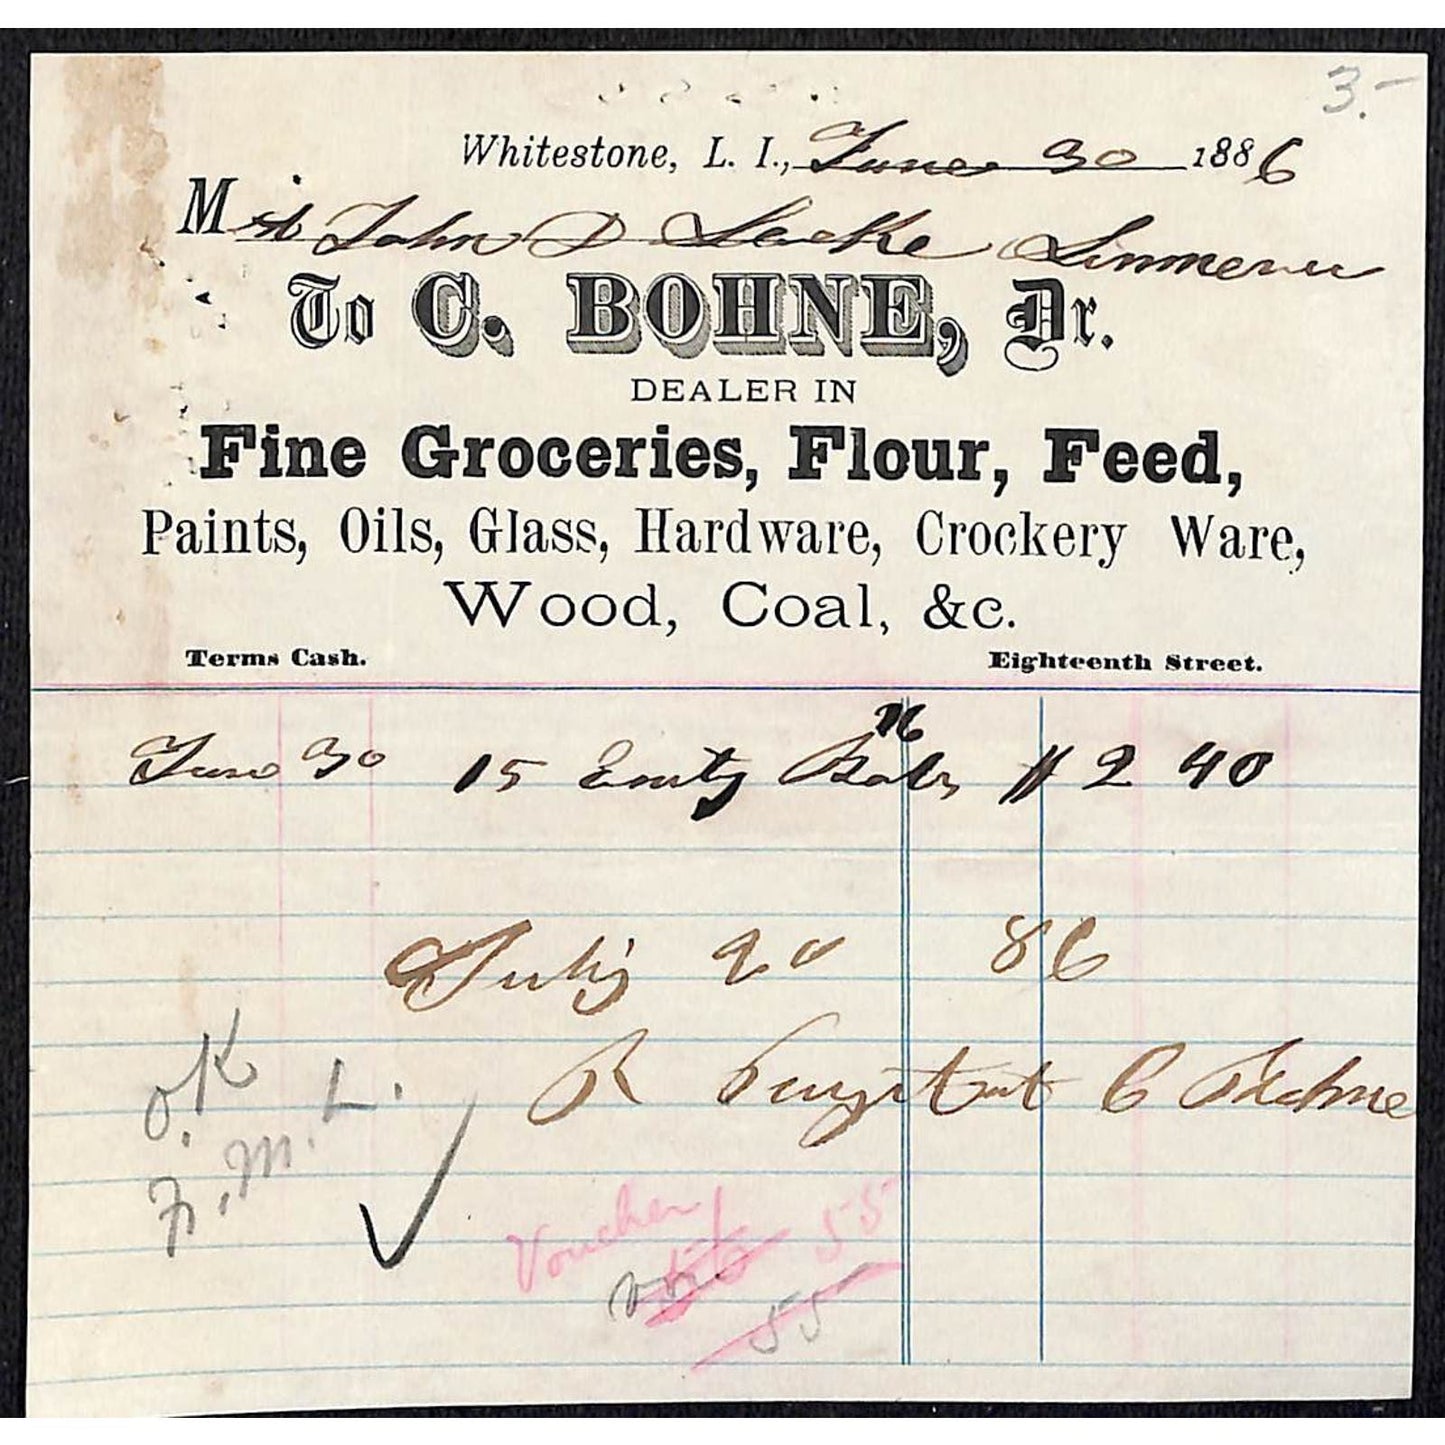 3.-
Whitestone, L. I., June 30 1886
M John D Locke
To C. BOHNE, Dr.
DEALER IN
Fine Groceries, Flour, Feed,
Paints, Oils, Glass, Hardware, Crockery Ware,
Wood, Coal, &c.
Terms Cash. Eighteenth Street.
16
June 30 15 Emty $2 40
July 20 86
C Bohne
O.K
F. M. L.
Voucher 55
55